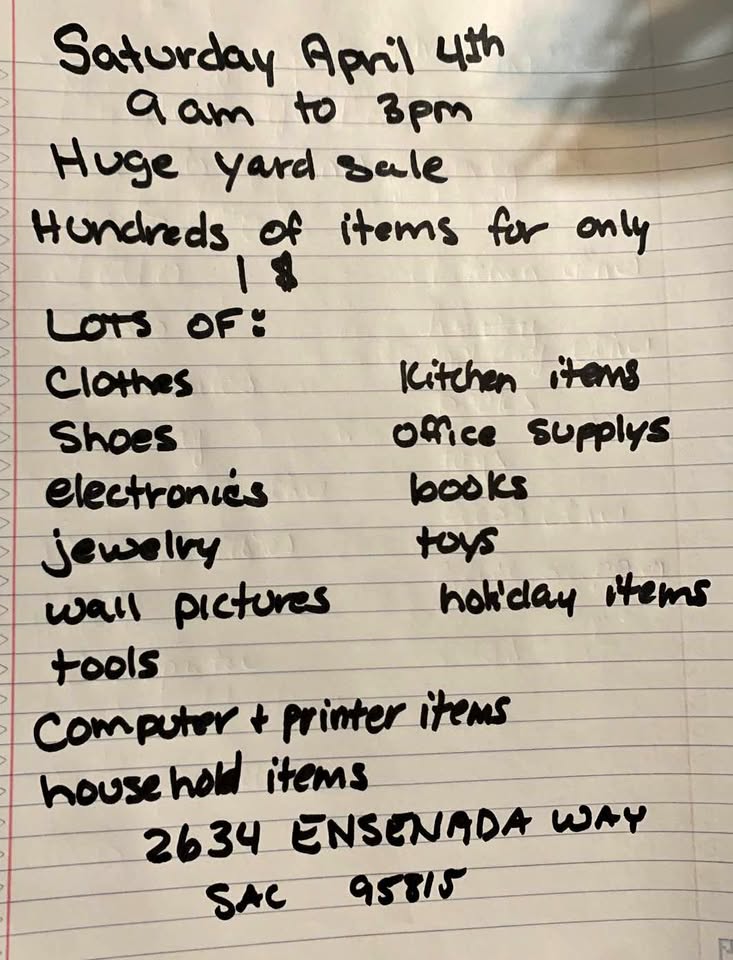 Saturday April 4th
9 am to 3pm
Huge yard sale
Hundreds of items for only
1 $
LOTS OF:
Clothes Kitchen items
Shoes office supplys
electronics books
jewelry toys
wall pictures holiday items
tools
Computer + printer items
household items
2634 ENSENADA WAY
SAC 95815